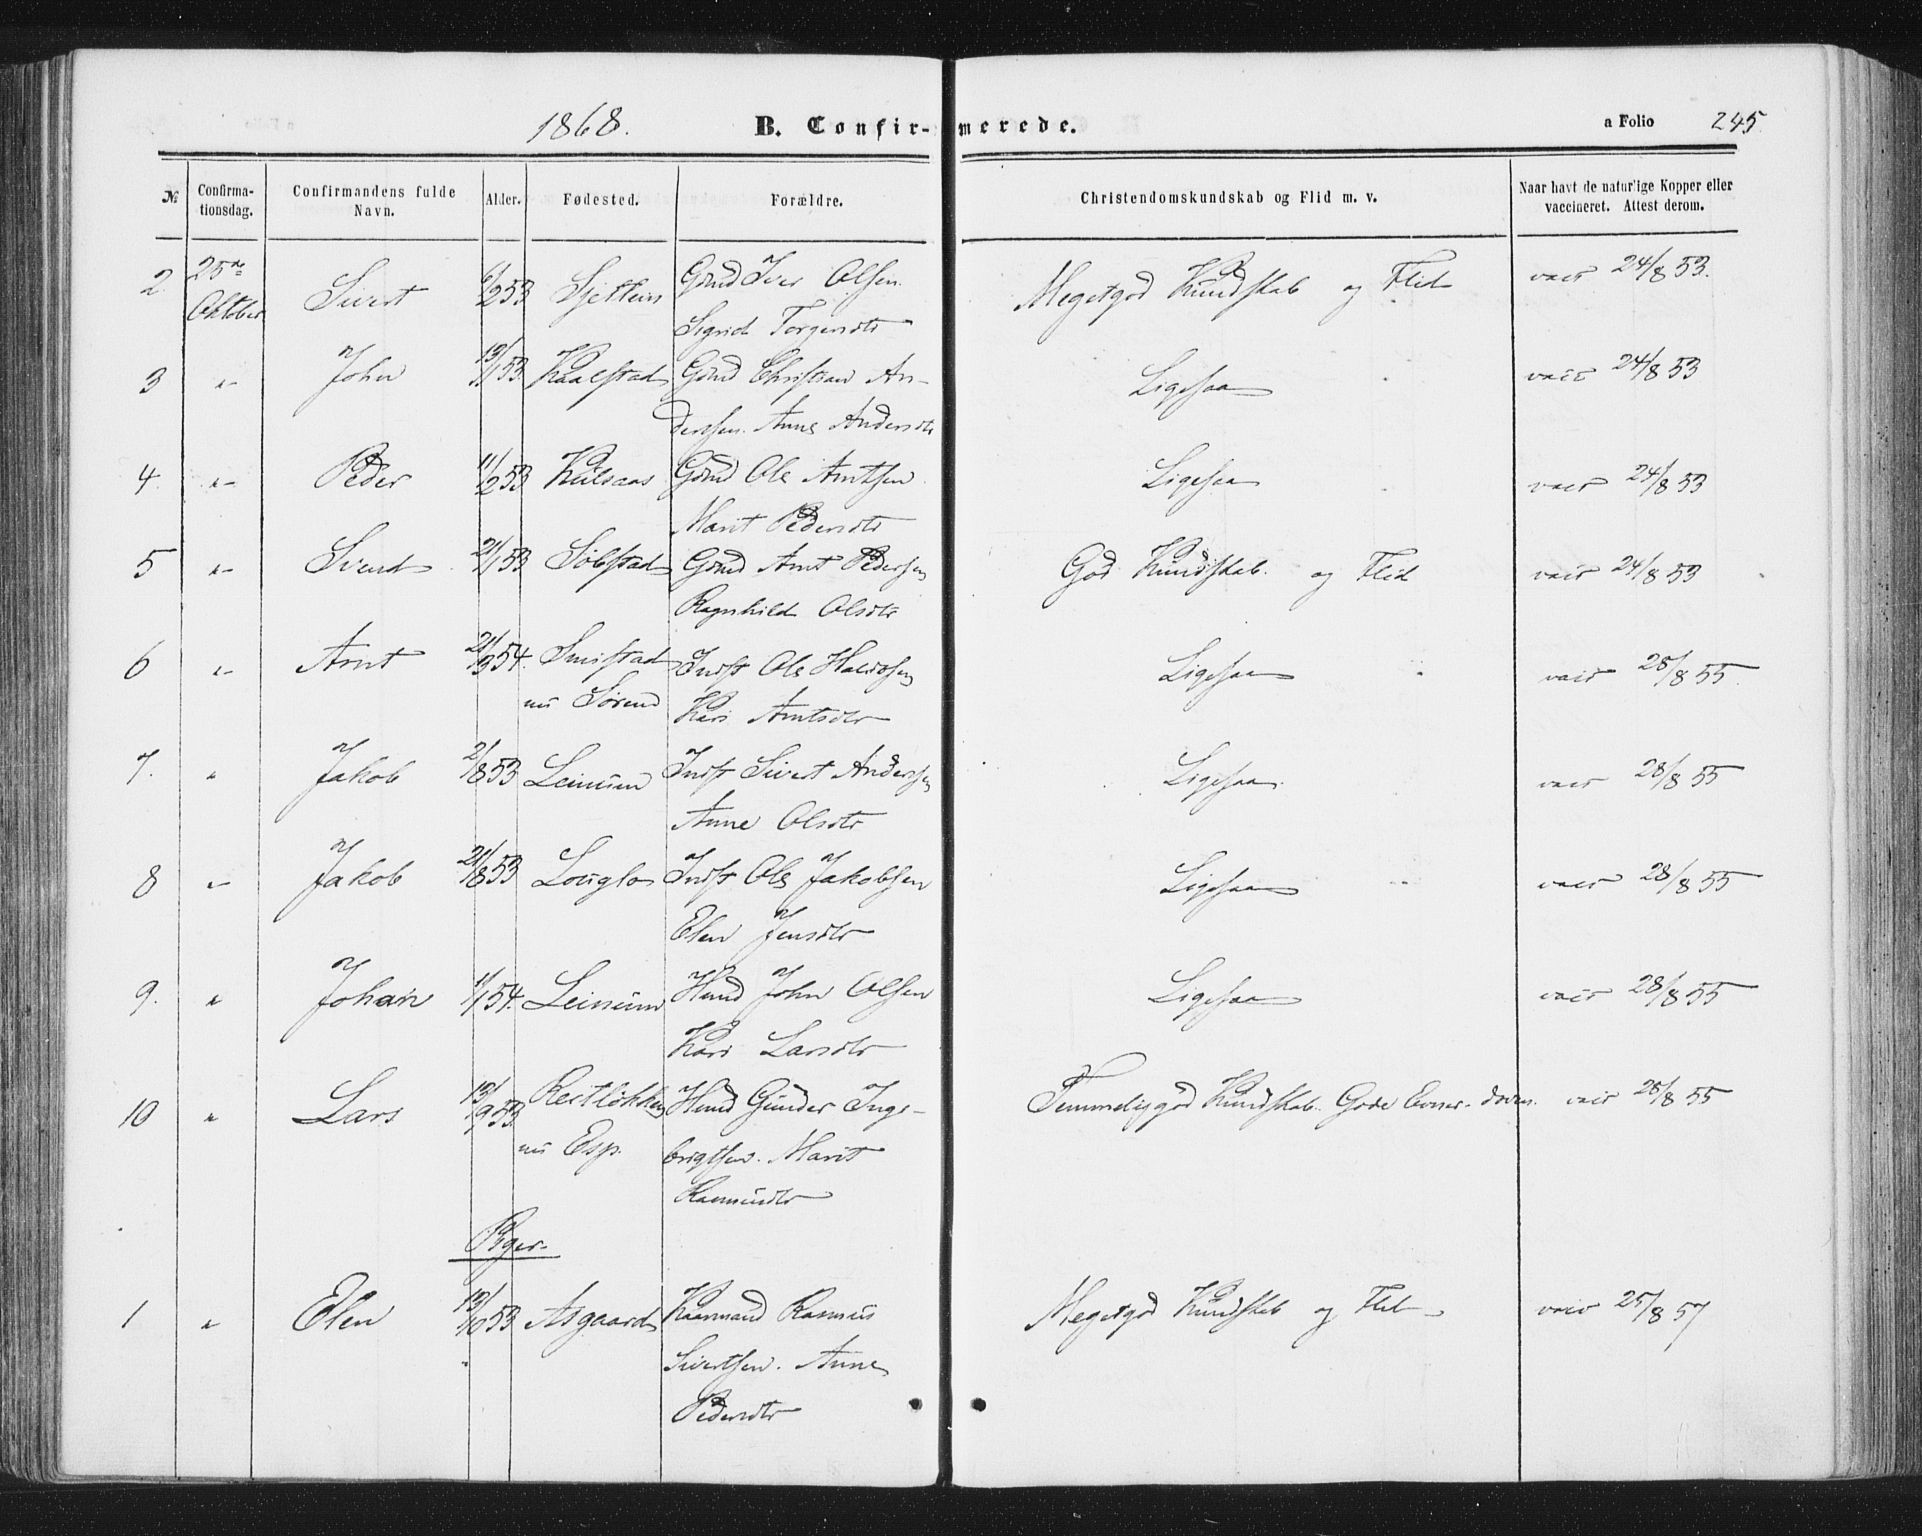 1868. B. Confirmerede. a Folio 245.
№ Confirmationsdag. Confirmandens fulde Navn. Alder. Fødested. Forældre. Christendomskundskab og Flid m. v. Naar havt de naturlige Kopper eller vaccineret. Attest derom.
2 25de Oktober Sivert 6/2 53 Gmd Iver Olsen Megetgod Kundskab og Flid vacc 24/8 53.
Sigrid
3 "- John 13/1 53 Kaalstad Gmd Christian An- Ligesaa vacc 24/8 53
dersen. Anne Andersdtr
4. "- Peder 11/2 53 Gmd Ole Arntsen Ligesaa vacc 24/8 53
Marit Pedersdtr
5 "- Sivert 21/1 53 Solstad Gmd Arnt Pedersen God Kundskab og Flid vacc 24/8 53
Ragnhild Olsdtr
6 "- Arnt 21/3 54. Smistad Indst Ole Haldosen Ligesaa vacc 28/8 55.
nu Kari Arntsdtr
7. " Jakob 2/8 53 Leinum Indst Sivert Andersen Ligesaa. vacc 28/8 55
Anne Olsdtr
8 "- Jakob 21/8 53 Indst Ole Jakobsen Ligesaa vacc 28/8 55
Elen Jensdtr
9. " Johan 1/1 54. Leinum Hmd John Olsen Ligesaa vacc 28/8 55
Kari Larsdtr
10 " Lars 13/9 53 Hmd Gunder Inge- Temmeliggod Kundskab. Gode Evner. doven. vacc 28/8 55
nu Esp. brigtsen. Marit
Rasmusdtr
Piger.
1 " Elen 13/10 53 Asgaard Kaarmand Rasmus Megetgod Kundskab og Flid vacc 25/8 57
Sivertsen. Anne
Pedersdtr